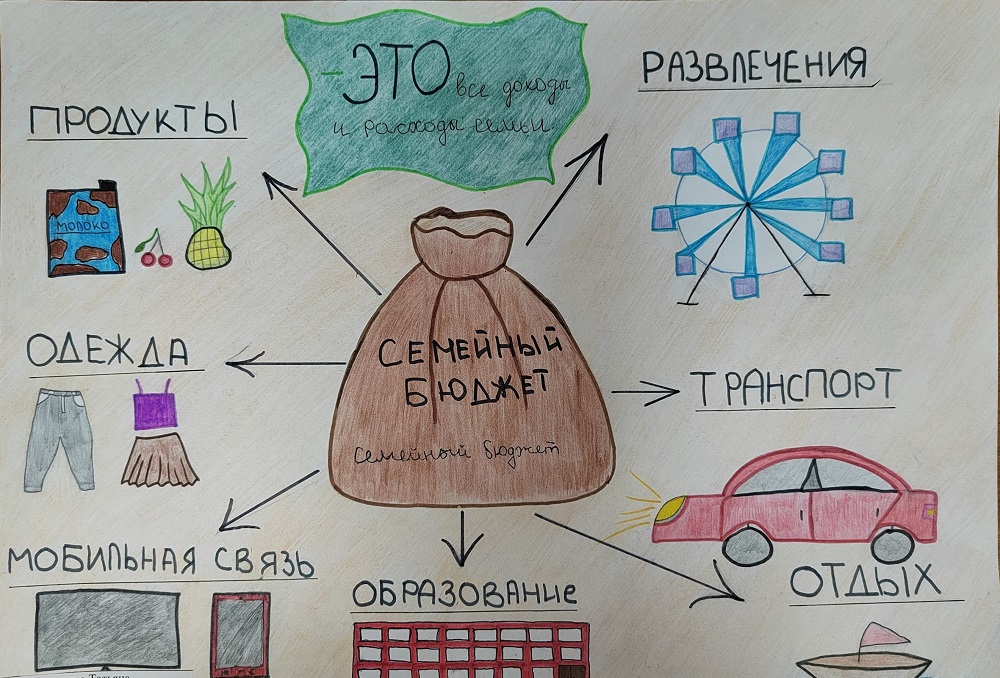 - ЭТО все доходы
и расходы семьи.
РАЗВЛЕЧЕНИЯ
ПРОДУКТЫ
МОЛОКО
СЕМЕЙНЫЙ
БЮДЖЕТ
семейный бюджет
ОДЕЖДА
ТРАНСПОРТ
МОБИЛЬНАЯ СВЯЗЬ
ОБРАЗОВАНИЕ
ОТДЫХ